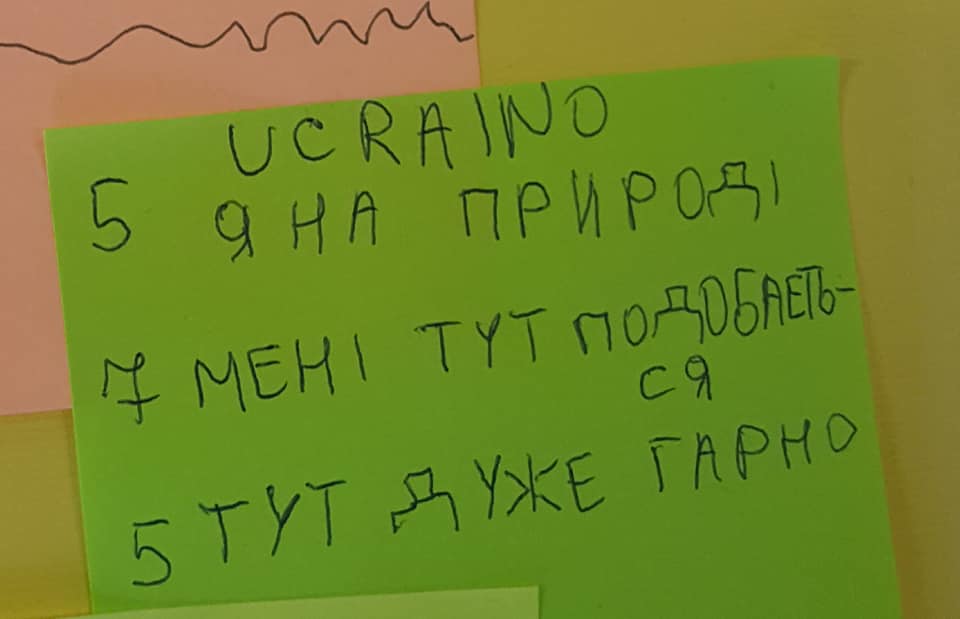 UCRAINO
5 Я НА ПРИРОДІ
7 МЕНІ ТУТ ПОДОБАЕТЬ-
СЯ
5 ТУТ ДУЖЕ ГАРНО